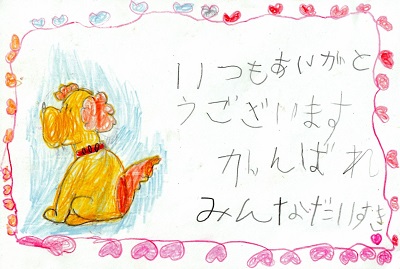 いつもありがと
うございます
がんばれ
みんなだいすき